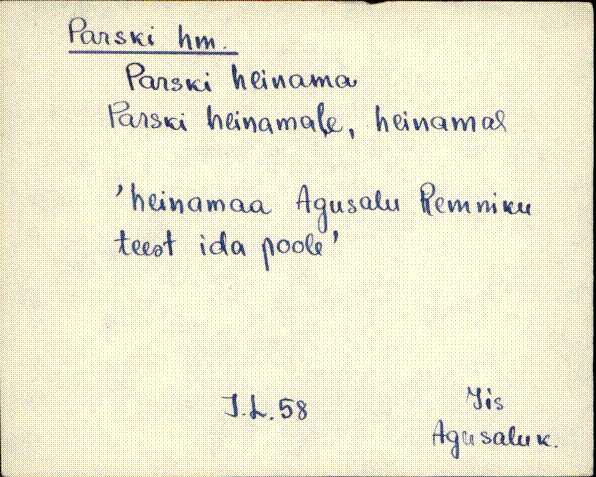 Parski hm.
Parski heinama
Parski heinamale, heinamal
'heinamaa Agusalu Remniku
teest ida poole'
J.L. 58
Iis
Agusalu k.